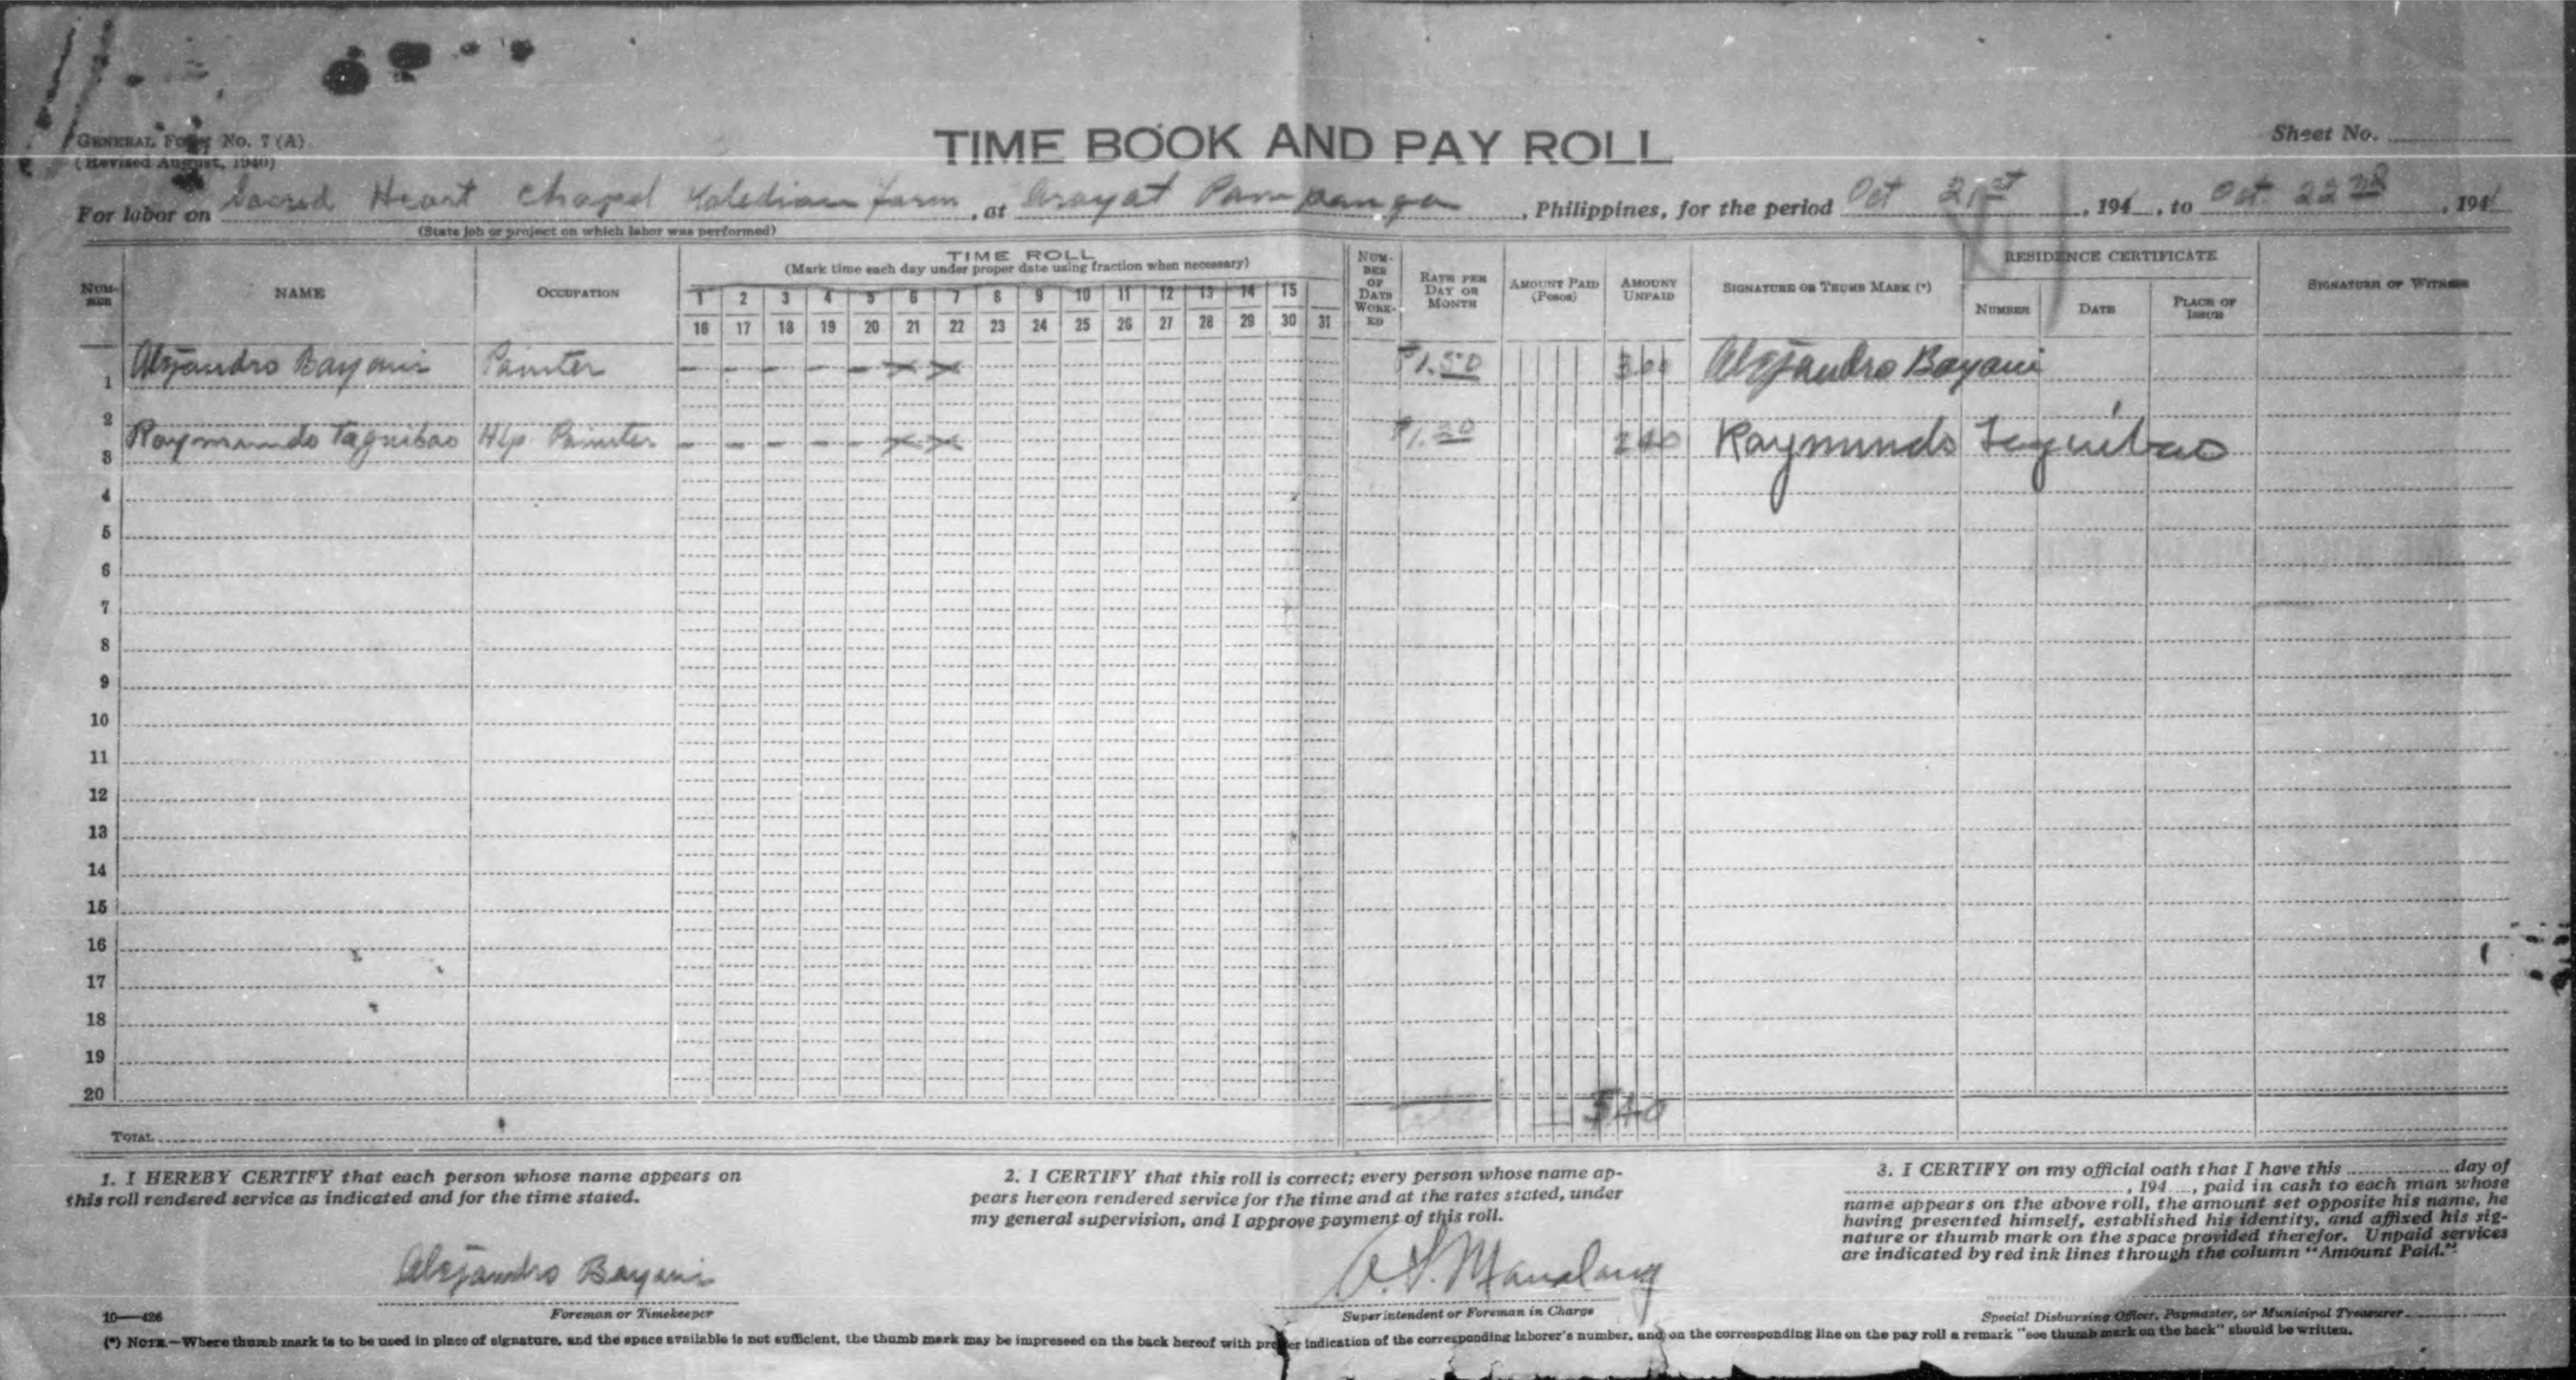 GENERAL FORM No. 7 (A)
(Revised August, 1940)
TIME BOOK AND PAY ROLL
Sheet No.
For labor on Sacred Heart Chapel farm, at Arayat Pampanga, Philippines, for the period Oct 21st, 194, to Oct. 22nd, 1941
(State job or project on which labor was performed)
NUMBER
NAME
OCCUPATION
TIME ROLL
(Mark time each day under proper date using fraction when necessary)
1 2 3 4 5 6 7 8 9 10 11 12 13 14 15
16 17 18 19 20 21 22 23 24 25 26 27 28 29 30 31
NUMBER OF DAYS WORKED
RATE PER DAY OR MONTH
AMOUNT PAID (Pesos)
AMOUNT UNPAID
SIGNATURE OR THUMB MARK (*)
RESIDENCE CERTIFICATE
NUMBER
DATE
PLACE OF ISSUE
SIGNATURE OF WITNESS
1 Alejandro Bayani Painter - - - - - x x ₱1.50 3 00 Alejandro Bayani
2
3 Raymundo Taguibao Hlp. Painter - - - - - x x ₱1.20 2 40 Raymundo Taguibao
4
5
6
7
8
9
10
11
12
13
14
15
16
17
18
19
20
TOTAL 5 40
1. I HEREBY CERTIFY that each person whose name appears on
this roll rendered service as indicated and for the time stated.
Alejandro Bayani
Foreman or Timekeeper
2. I CERTIFY that this roll is correct; every person whose name ap-
pears hereon rendered service for the time and at the rates stated, under
my general supervision, and I approve payment of this roll.
A. S. Manalang
Superintendent or Foreman in Charge
3. I CERTIFY on my official oath that I have this day of
, 194 , paid in cash to each man whose
name appears on the above roll, the amount set opposite his name, he
having presented himself, established his identity, and affixed his sig-
nature or thumb mark on the space provided therefor. Unpaid services
are indicated by red ink lines through the column "Amount Paid."
Special Disbursing Officer, Paymaster, or Municipal Treasurer
10—426
(*) NOTE.—Where thumb mark is to be used in place of signature, and the space available is not sufficient, the thumb mark may be impressed on the back hereof with proper indication of the corresponding laborer's number, and on the corresponding line on the pay roll a remark "see thumb mark on the back" should be written.